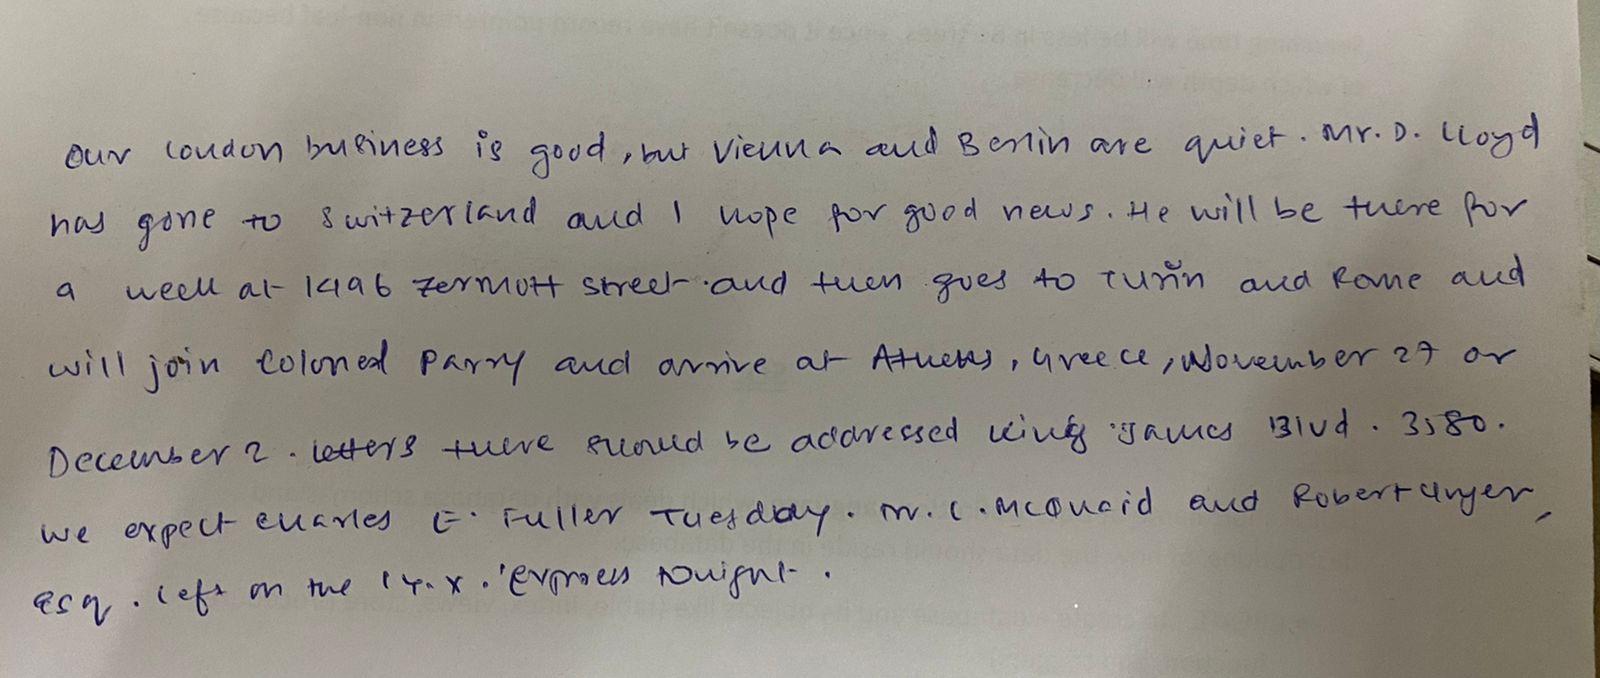 our London business is good, but Vienna and Berlin are quiet. Mr. D. Lloyd
has gone to Switzerland and I hope for good news. He will be there for
a week at 1496 Zermott street and then goes to Turin and Rome and
will join Colonel Parry and arrive at Athens, Greece, November 27 or
December 2. letters there should be addressed king James Blvd. 3580.
we expect Charles E. Fuller Tuesday. Mr. C. McQuaid and Robert Unger,
Esq. left on the 'Express tonight.